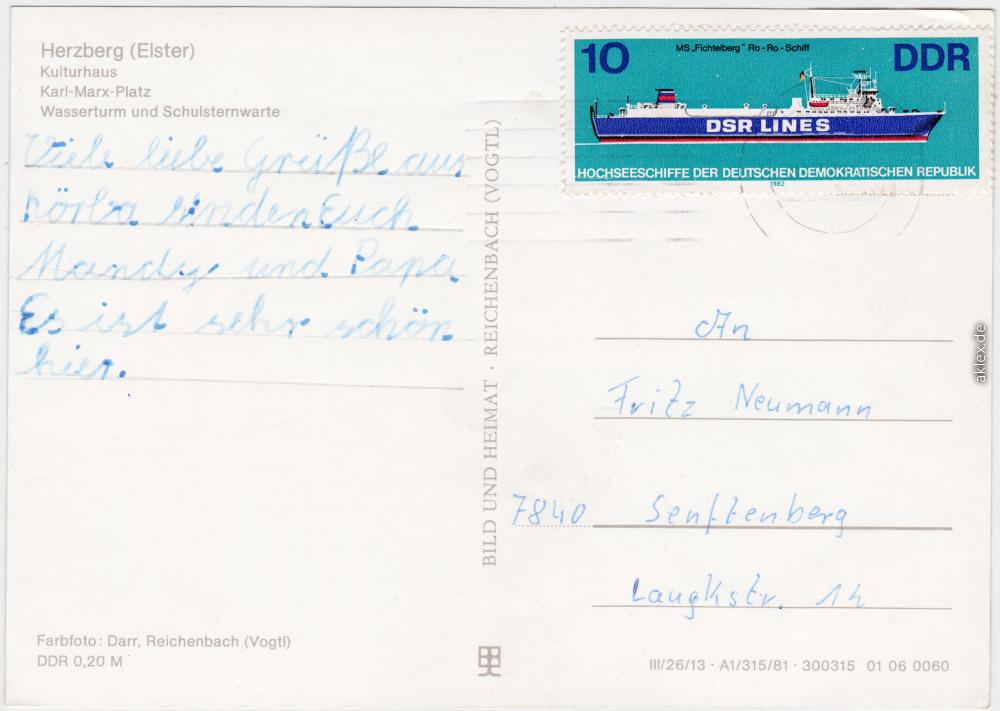 Herzberg (Elster)
Kulturhaus
Karl-Marx-Platz
Wasserturm und Schulsternwarte
Viele liebe Grüße aus
Körba sinden Euch
Mandy und Papa
Es ist sehr schön
hier.
Farbfoto: Darr, Reichenbach (Vogtl)
DDR 0,20 M
BILD UND HEIMAT · REICHENBACH (VOGTL)
10 MS „Fichtelberg" Ro-Ro-Schiff DDR
DSR LINES
HOCHSEESCHIFFE DER DEUTSCHEN DEMOKRATISCHEN REPUBLIK
1982
An
Fritz Neumann
7840 Senftenberg
Laugkstr. 14
III/26/13 · A1/315/81 · 300315 01 06 0060
aklex.de